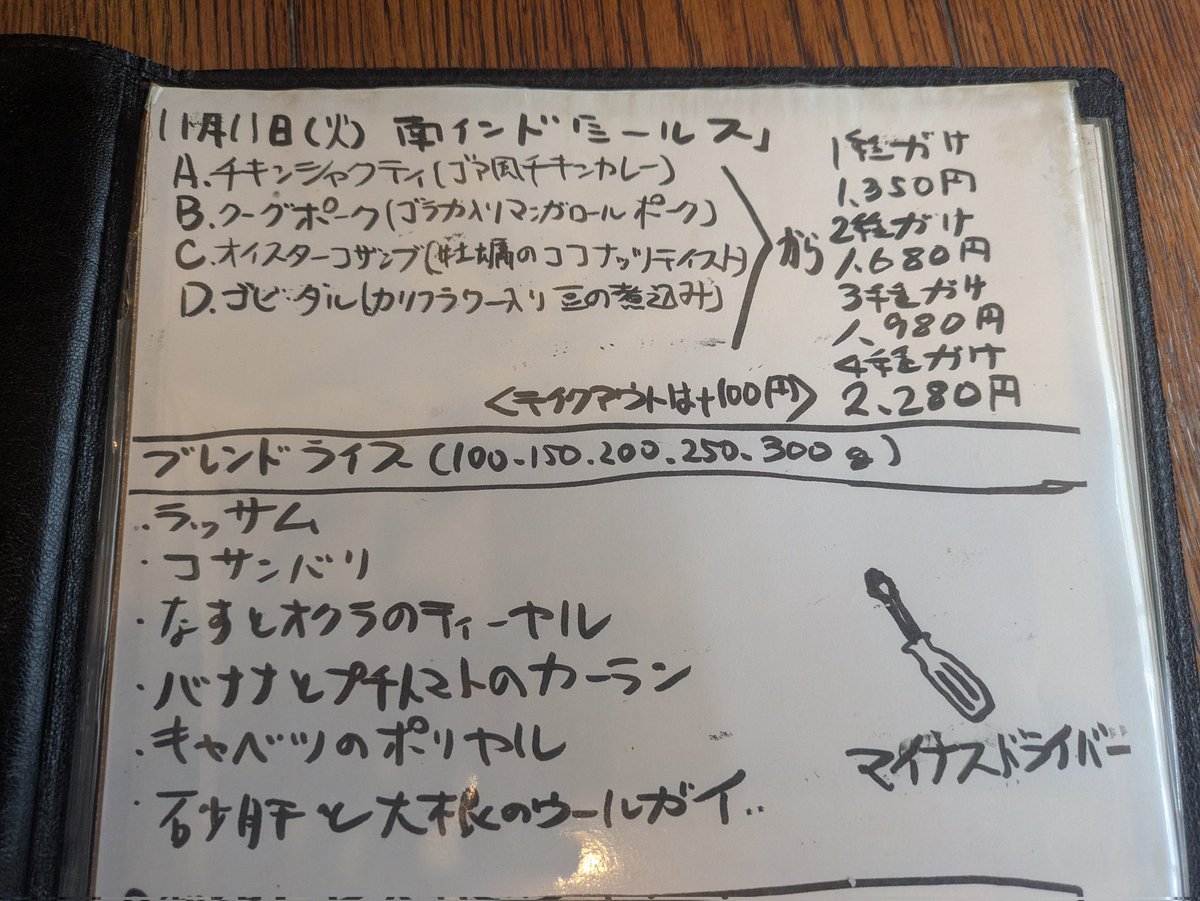 11月11日(火) 南インド「ミールス」
A.チキンシャクティ(ゴア風チキンカレー)
B.クーグポーク(ゴラカ入りマンガロールポーク)
C.オイスターコザンブ(牡蠣のココナッツテイスト)
D.ゴビ・ダル(カリフラワー入り豆の煮込み)
から
1種がけ
1.350円
2種がけ
1.680円
3種がけ
1.980円
4種がけ
2.280円
<テイクアウトは+100円>
ブレンドライス(100.150.200.250.300g)
・ラッサム
・コサンバリ
・なすとオクラのティーヤル
・バナナとプチトマトのカーラン
・キャベツのポリヤル
・砂肝と大根のウールガイ..
マイナスドライバー